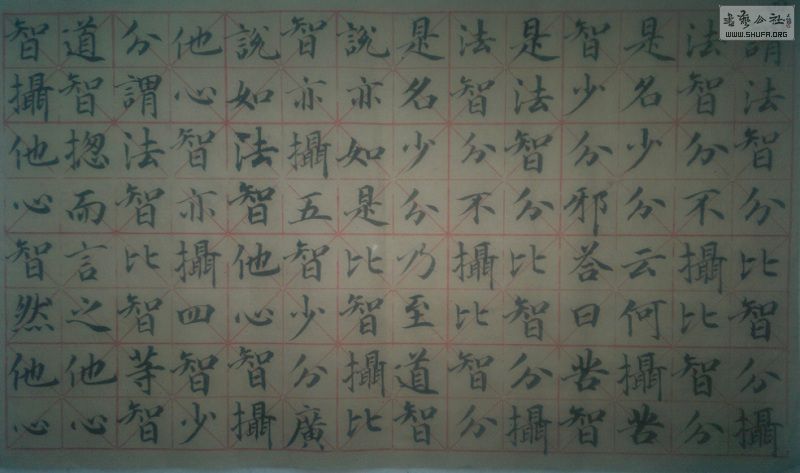 謂法智分比智分攝
法智分不攝比智分
是名少分云何攝苦
智少分邪荅曰苦智
是法智分比智分攝
法智分不攝比智分
是名少分乃至道智
說亦如是比智攝比
智亦攝五智少分廣
說如法智他心智攝
他心智亦攝四智少
分謂法智比智等智
道智揔而言之他心
智攝他心智然他心
WWW.SHUFA.ORG